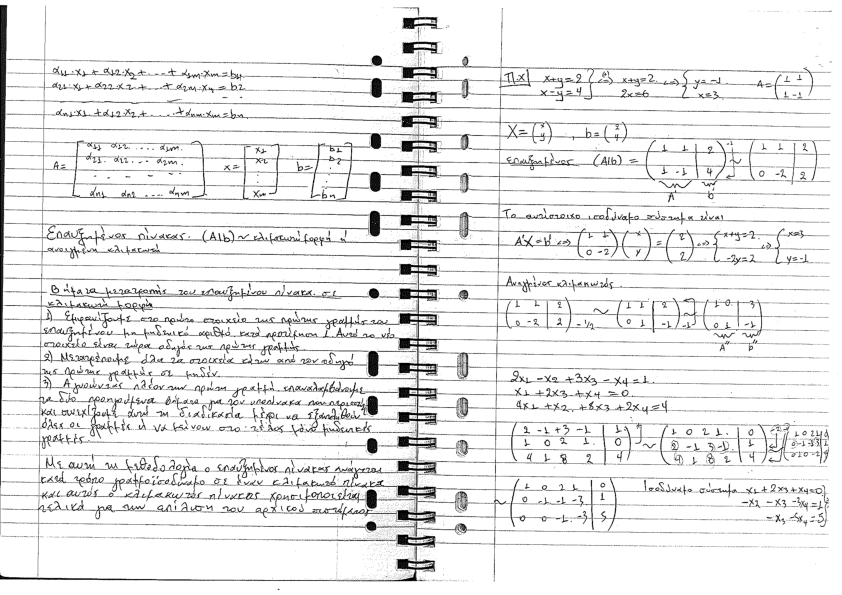 α11·x1 + α12·x2 + ... + α1m·xm = b1
α21·x1 + α22·x2 + ... + α2m·xm = b2
αn1·x1 + αn2·x2 + ... + αnm·xm = bn
A = [ α11 α12 ... α1m   x = [ x1   b = [ b1
α21 α22 ... α2m.   x2   b2
αn1 αn2 ... αnm ]   xm ]   bn ]
Επαυξημένος πίνακας. (A|b) ~ κλιμακωτή μορφή ή
ανηγμένη κλιμακωτή
Βήματα μετατροπής του επαυξημένου πίνακα σε
κλιμακωτή μορφή
1) Εμφανίζουμε στο πρώτο στοιχείο της πρώτης γραμμής του
επαυξημένου μη μηδενικό αριθμό κατά προτίμηση 1. Αυτό το νέο
στοιχείο είναι τώρα οδηγός της πρώτης γραμμής
2) Μετατρέπουμε όλα τα στοιχεία κάτω από τον οδηγό
της πρώτης γραμμής σε μηδέν.
3) Αγνοώντας πλέον την πρώτη γραμμή επαναλαμβάνουμε
τα δύο προηγούμενα βήματα για τον υποπίνακα που περισσεύει
και συνεχίζουμε αυτή τη διαδικασία μέχρι να εξαντληθούν
όλες οι γραμμές ή να μείνουν στο τέλος μόνο μηδενικές
γραμμές.
Με αυτή τη μεθοδολογία ο επαυξημένος πίνακας ανάγεται
κατά τρόπο γραμμοϊσοδύναμο σε έναν κλιμακωτό πίνακα
και αυτός ο κλιμακωτός πίνακας χρησιμοποιείται
τελικά για την επίλυση του αρχικού συστήματος
Π.χ x+y=2 } (+) ⇔ x+y=2 ⇔ { y=-1   A = ( 1 1
x-y=4   2x=6   x=3   1 -1 )
X = (x y) , b = (2 4)
επαυξημένος (A|b) = ( 1 1 | 2 ) -1 ~ ( 1 1 | 2
1 -1 | 4   0 -2 | 2 )
A   b
Το αντίστοιχο ισοδύναμο σύστημα είναι
A'X = b' ⇔ ( 1 1 ) ( x ) = ( 2 ) ⇔ { x+y=2. ⇔ { x=3
0 -2   y   2   -2y=2   y=-1
Ανηγμένος κλιμακωτός.
( 1 1 | 2 ) ~ ( 1 1 | 2 ) ~ ( 1 0 | 3 )
0 -2 | 2 -1/2   0 1 | -1 -1   0 1 | -1
A''   b''
2x1 - x2 + 3x3 - x4 = 1.
x1 + 2x3 + x4 = 0.
4x1 + x2 + 8x3 + 2x4 = 4
( 2 -1 +3 -1 | 1 ) ~ ( 1 0 2 1. | 0
1 0 2 1. | 0   2 -1 3 -1 | 1
4 1 8 2 | 4   4 1 8 2 | 4 )
~ ( 1 0 2 1 | 0   Ισοδύναμο σύστημα x1 + 2x3 + x4 = 0
0 -1 -1 -3 | 1   -x2 - x3 - 3x4 = 1
0 0 -1 -3 | 5 )   -x3 -5x4 = 5